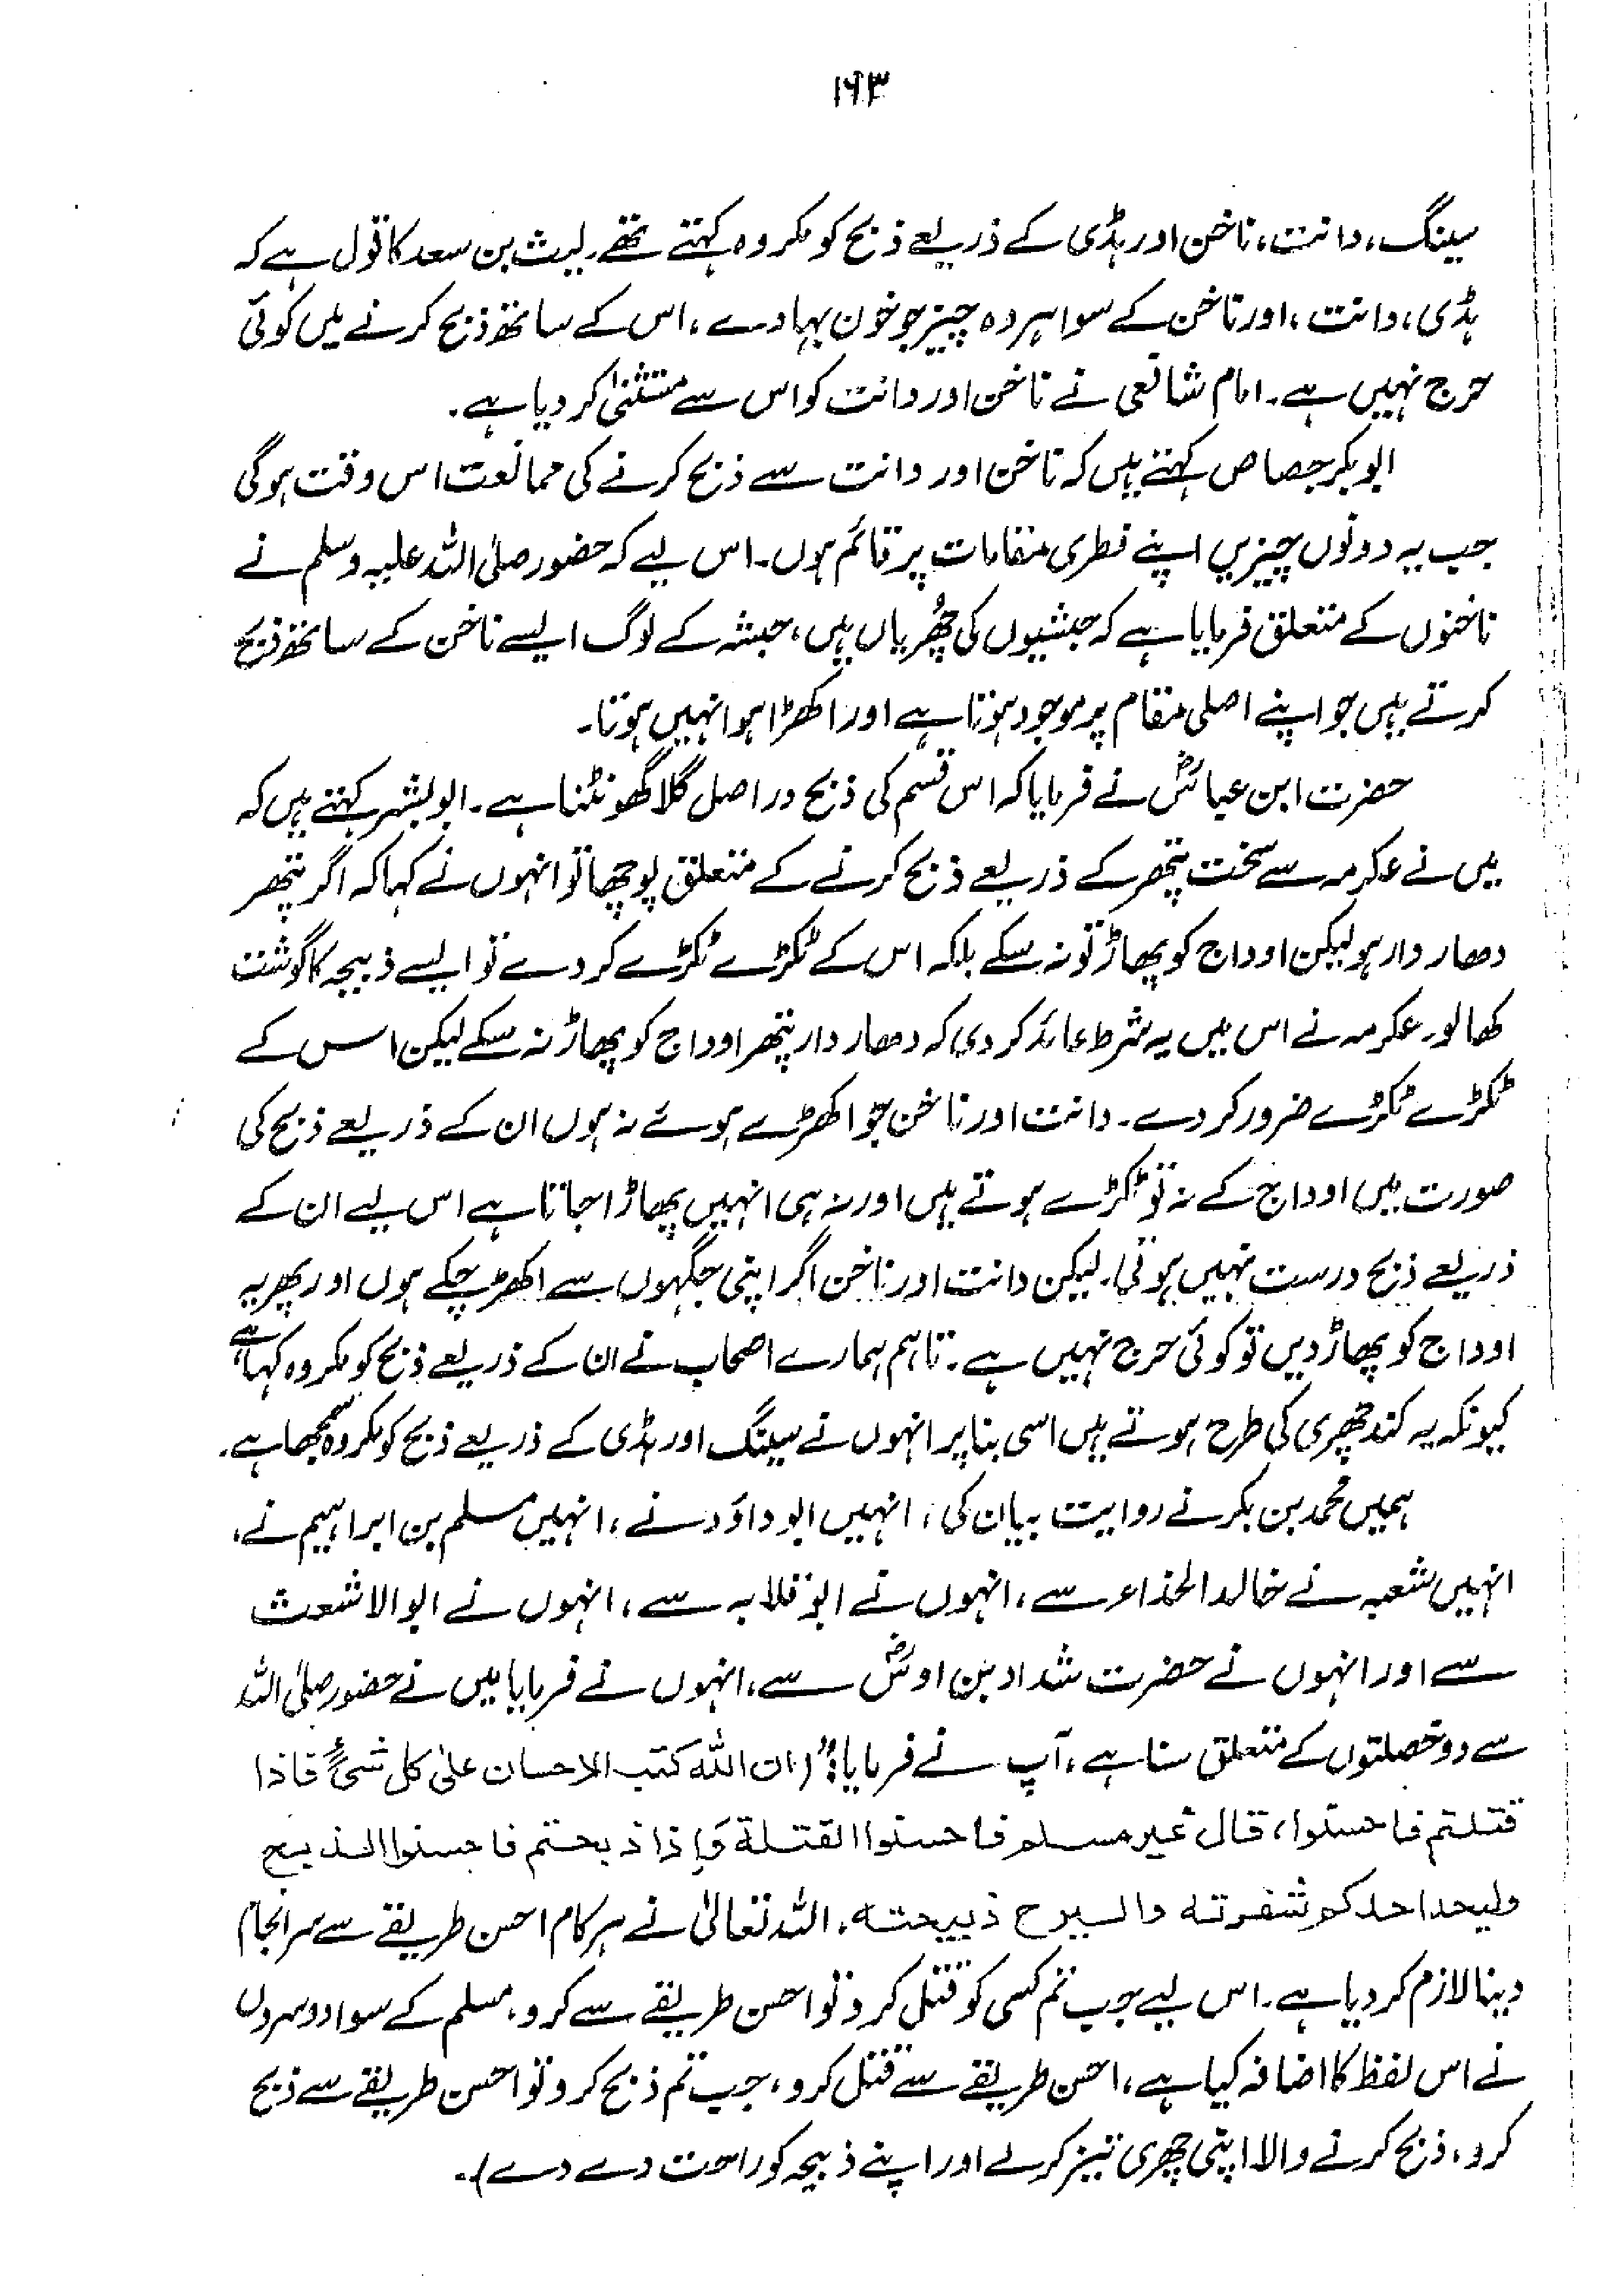 ۱۶۳
سینگ، دانت، ناخن اور ہڈی کے ذریعے ذبح کو مکروہ کہتے تھے۔ لیث بن سعد کا قول ہے کہ
ہڈی، دانت، اور ناخن کے سوا ہر وہ چیز جو خون بہا دے، اس کے ساتھ ذبح کرنے میں کوئی
حرج نہیں ہے۔ امام شافعی نے ناخن اور دانت کو اس سے مستثنیٰ کر دیا ہے۔
ابوبکر جصاص کہتے ہیں کہ ناخن اور دانت سے ذبح کرنے کی ممانعت اس وقت ہوگی
جب یہ دونوں چیزیں اپنے فطری مقامات پر قائم ہوں۔ اس لیے کہ حضور صلی اللہ علیہ وسلم نے
ناخنوں کے متعلق فرمایا ہے کہ حبشیوں کی چُھریاں ہیں، حبشہ کے لوگ ایسے ناخن کے ساتھ ذبح
کرتے ہیں جو اپنے اصلی مقام پر موجود ہوتا ہے اور اکھڑا ہوا نہیں ہوتا۔
حضرت ابن عباسؓ نے فرمایا کہ اس قسم کی ذبح دراصل گلا گھونٹنا ہے۔ ابوبشر کہتے ہیں کہ
میں نے عکرمہ سے سخت پتھر کے ذریعے ذبح کرنے کے متعلق پوچھا تو انہوں نے کہا کہ اگر پتھر
دھار دار ہو لیکن اوداج کو پھاڑ تو نہ سکے بلکہ اس کے ٹکڑے ٹکڑے کر دے تو ایسے ذبیحہ کا گوشت
کھا لو۔ عکرمہ نے اس میں یہ شرط عائد کر دی کہ دھار دار پتھر اوداج کو پھاڑ نہ سکے لیکن اس کے
ٹکڑے ٹکڑے ضرور کر دے۔ دانت اور ناخن جو اکھڑے ہوئے نہ ہوں ان کے ذریعے ذبح کی
صورت میں اوداج کے نہ تو ٹکڑے ہوتے ہیں اور نہ ہی انہیں پھاڑا جاتا ہے اس لیے ان کے
ذریعے ذبح درست نہیں ہوتی۔ لیکن دانت اور ناخن اگر اپنی جگہوں سے اکھڑ چکے ہوں اور پھر یہ
اوداج کو پھاڑ دیں تو کوئی حرج نہیں ہے۔ تاہم ہمارے اصحاب نے ان کے ذریعے ذبح کو مکروہ کہا ہے
کیونکہ یہ کند چھری کی طرح ہوتے ہیں اسی بنا پر انہوں نے سینگ اور ہڈی کے ذریعے ذبح کو مکروہ سمجھا ہے۔
ہمیں محمد بن بکر نے روایت بیان کی، انہیں ابو داؤد نے، انہیں مسلم بن ابراہیم نے،
انہیں شعبہ نے خالد الحذاء سے، انہوں نے ابو قلابہ سے، انہوں نے ابوالاشعث
سے اور انہوں نے حضرت شداد بن اوسؓ سے، انہوں نے فرمایا میں نے حضور صلی اللہ
سے دو خصلتوں کے متعلق سنا ہے، آپ نے فرمایا: (ان اللہ کتب الاحسان علیٰ کل شئ فاذا
قتلتم فاحسنوا، قال غیر مسلم فاحسنوا القتلۃ وإذا ذبحتم فاحسنوا الذبح
ولیحد احدکم شفرتہ والیرح ذبیحتہ۔ اللہ تعالیٰ نے ہر کام احسن طریقے سے سرانجام
دینا لازم کر دیا ہے۔ اس لیے جب تم کسی کو قتل کرو تو احسن طریقے سے کرو، مسلم کے سوا دوسروں
نے اس لفظ کا اضافہ کیا ہے، احسن طریقے سے قتل کرو، جب تم ذبح کرو تو احسن طریقے سے ذبح
کرو، ذبح کرنے والا اپنی چھری تیز کرلے اور اپنے ذبیحہ کو راحت دے دے)۔